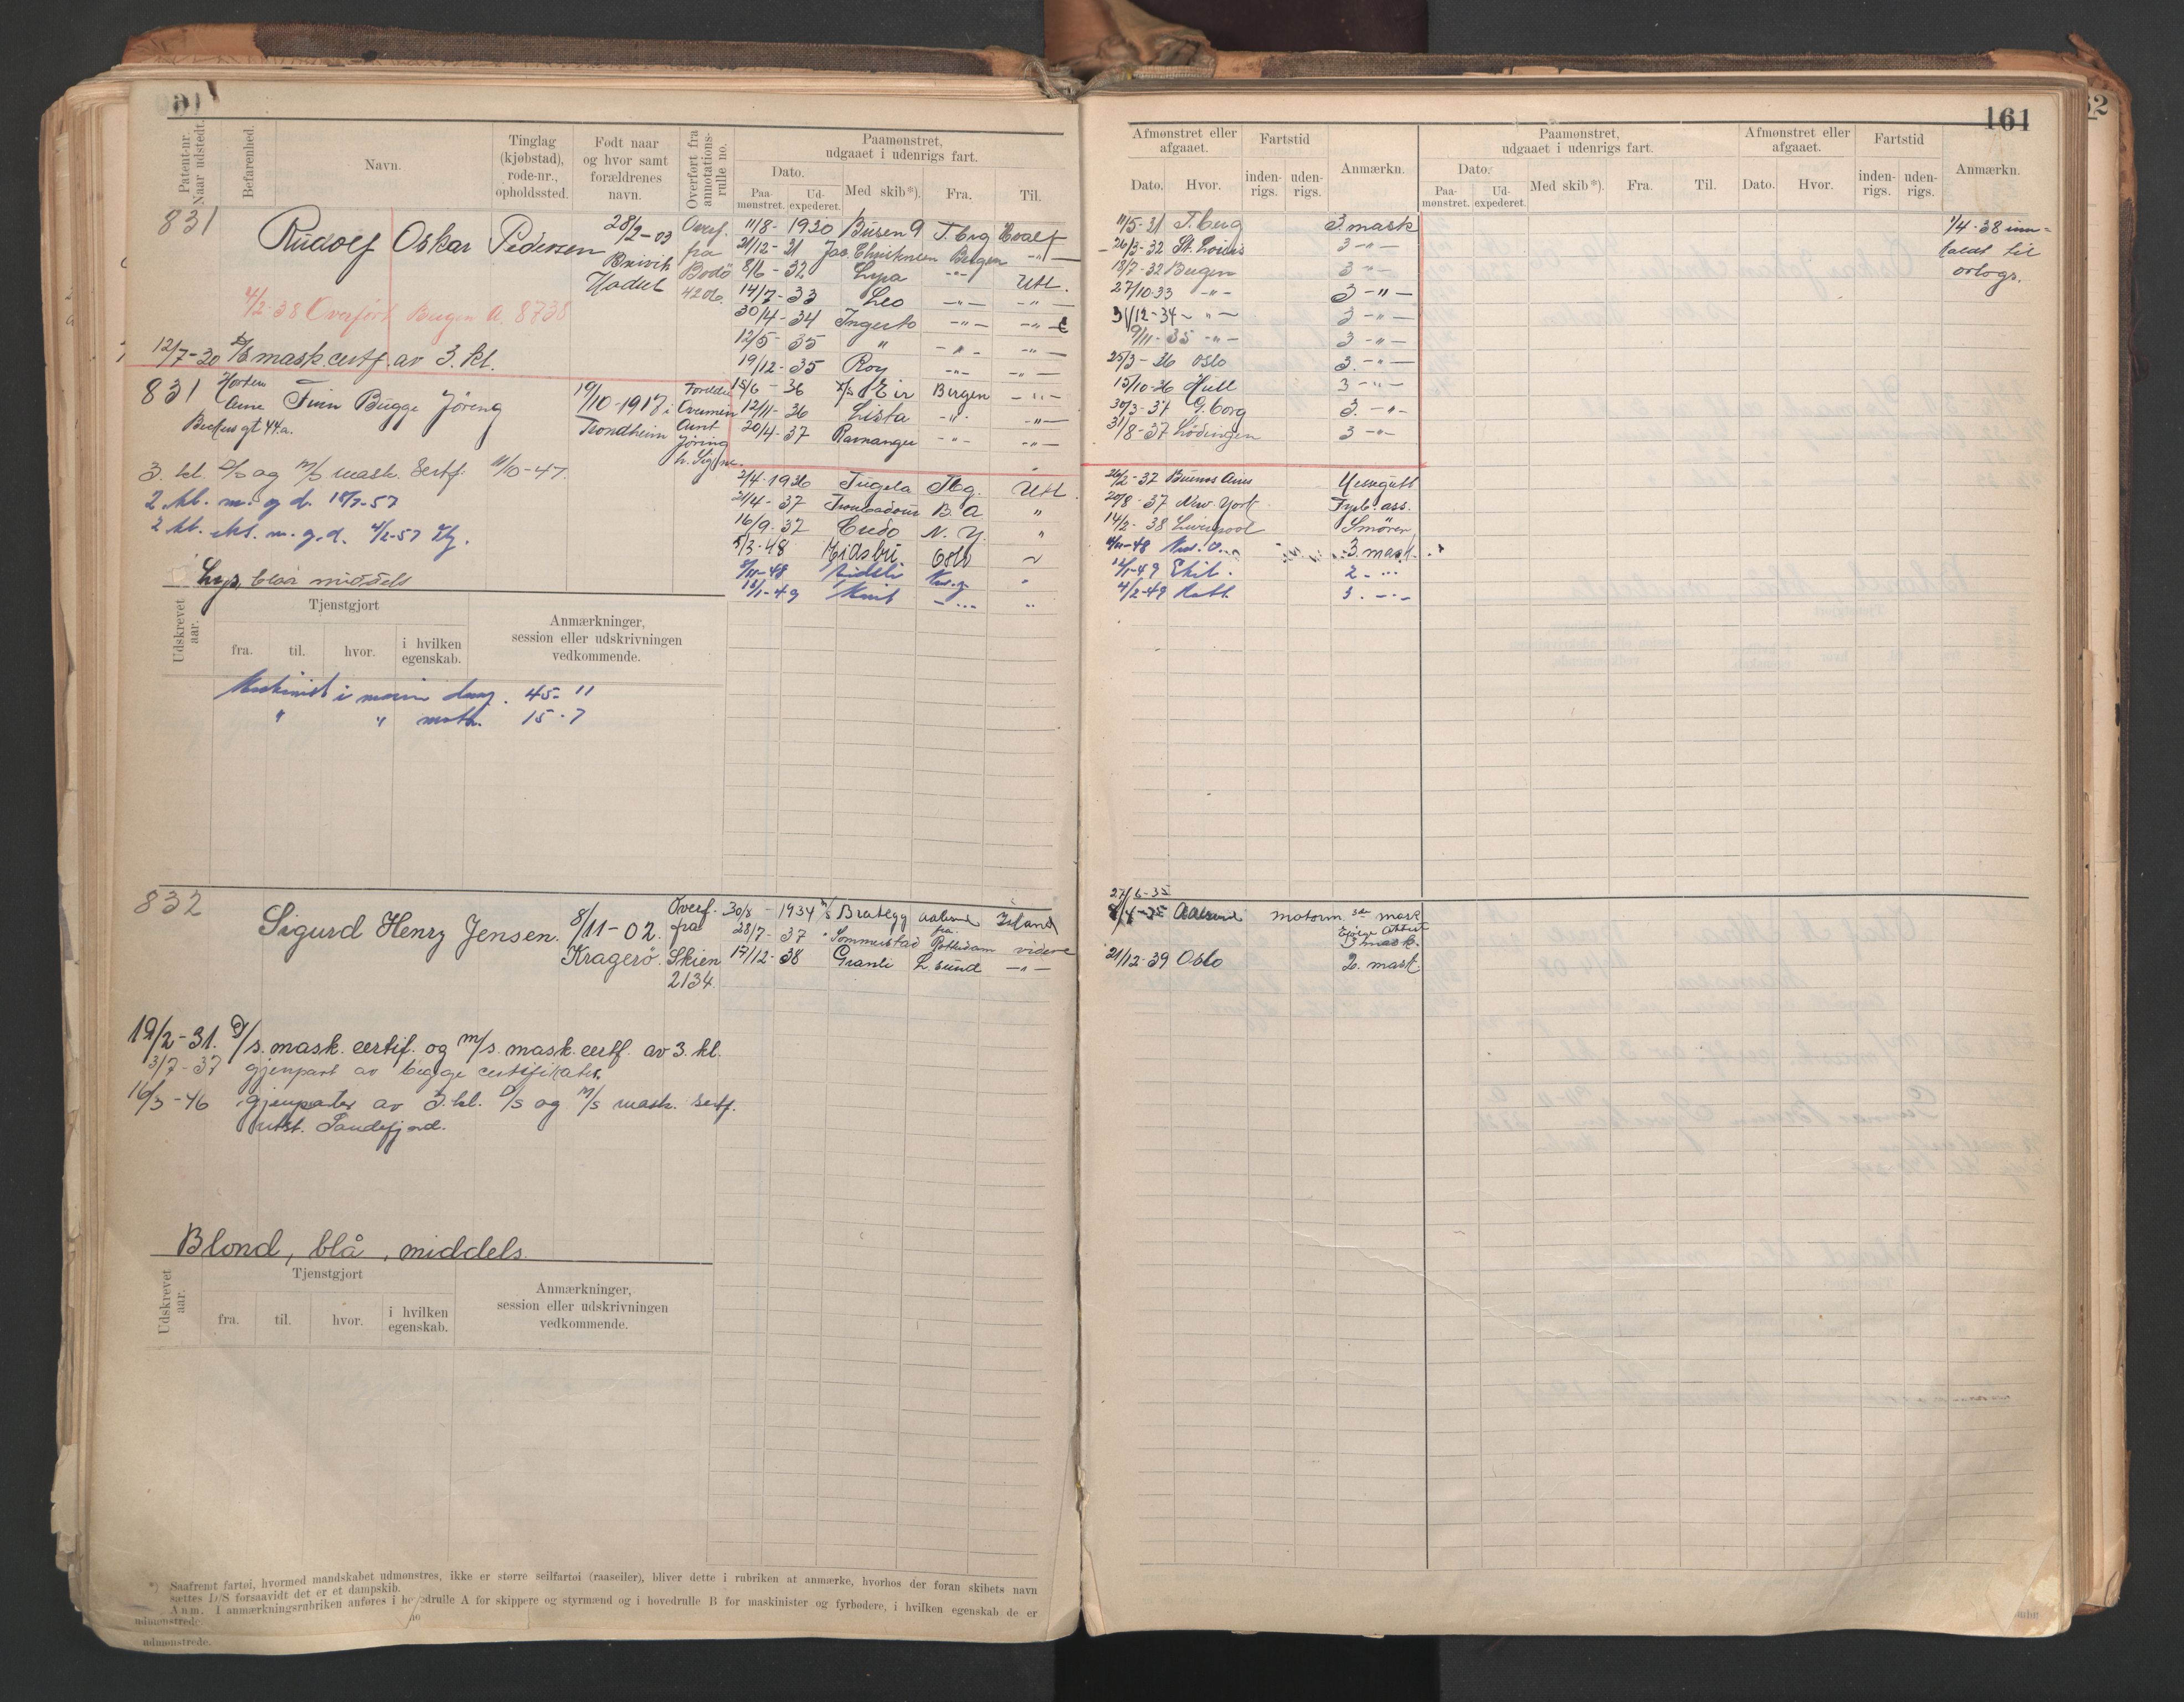 161
Patent-nr. Naar udstedt.
Befarenhed.
Navn.
Tinglag (kjøbstad), rode-nr., opholdssted.
Født naar og hvor samt forældrenes navn.
Overført fra annotations-rulle no.
Paamønstret, udgaaet i udenrigs fart.
Dato.
Paa-mønstret. Ud-expederet.
Med skib*).
Fra.
Til.
831
Rudolf Oskar Pedersen
28/2-03
Brevik
Hadsel
Overf. fra Bodö 4206.
4/2-38 Overført Bergen A. 8738
12/7-20 D/S mask. certf. av 3. kl.
11/8-1930 Busen 9 T.brg Hvalf
21/12-31 Jac. Christensen Bergen -"-
8/6-32 Lysa -"- Utl.
14/7-33 Leo -"- -"-
30/4-34 Ingerto -"- -"-
12/5-35 " -"- -"-
19/12-35 Roy -"- -"-
15/6-36 D/S Eir Bergen -"-
12/11-36 Lista -"- -"-
20/4-37 Ramanger -"- -"-
831 Horten
Arne Finn Bugge Jøreng
19/10-1917 i Trondheim
Foreldre
Arnt Jøring
h. Signe.
3. kl. D/S og M/S mask. sertf. 11/10-47.
2 kl. m. g d. 18/7-57
2 kl. eks. m. g. d. 4/2-57
Lys, blaa middels
2/4-1936 Tugela Tbg. Utl.
21/4-37 Troubadour B. A "
16/9-37 Credo N. Y. "
5/3-48 Hidsbu Oslo
Udskrevet aar.
Tjenstgjort
fra. til. hvor. i hvilken egenskab.
Anmærkninger, session eller udskrivningen vedkommende.
Maskinist i marin damp. 45-11
" " moto. 15-7
832
Sigurd Henry Jensen.
8/11-02.
Kragerö.
Overf. fra Skien 2134.
30/8-1934 M/S Brategg Aalesund Island
28/7-37 " Sommerstad fra Rotterdam videre
17/12-38 Granli L.sund -"-
19/2-31. D/S. mask. certif. og M/S. mask. certf. av 3. kl.
3/7-37 gjenpart av begge certifikater.
16/3-46 gjenparter av 3. kl. D/S og M/S mask. sertf.
utst. Sandefjord.
Blond, blå, middels.
Udskrevet aar.
Tjenstgjort
fra. til. hvor. i hvilken egenskab.
Anmærkninger, session eller udskrivningen vedkommende.
*) Saafremt fartøi, hvormed mandskabet udmønstres, ikke er større seilfartøi (raaseiler), bliver dette i rubriken at anmærke, hvorhos der foran skibets navn
sættes D/S forsaavidt det er et dampskib.
Anm. I anmærkningsrubriken anføres i hovedrulle A for skippere og styrmænd og i hovedrulle B for maskinister og fyrbødere, i hvilken egenskab de er
udmønstrede.
udmønstrede.
161
Afmønstret eller afgaaet.
Dato. Hvor.
Fartstid
inden-rigs. uden-rigs.
Anmærkn.
Paamønstret, udgaaet i udenrigs fart.
Dato.
Paa-mønstret. Ud-expederet.
Med skib*). Fra. Til.
Afmønstret eller afgaaet.
Dato. Hvor.
Fartstid
inden-rigs. uden-rigs.
Anmærkn.
11/5-31 T.berg 3. mask
26/3-32 St. Louis 3 -"-
18/7-32 Bergen 3 -"-
27/10-33 -"- 3 -"-
31/12-34 -"- 3 -"-
9/11-35 -"- 3 -"-
25/3-36 Oslo 3. -"-
15/10-36 Hull 3 -"-
30/3-37 G.borg 3. -"-
31/8-37 Lödingen 3 -"-
1/4-38 inn-
kaldt til
orlogs.
26/2-37 Buenos Aires
20/8-37 New York Fyrb. ass.
14/2-38 Liverpool Smörer
3. mask.
27/6-35
Aalesund motorm. 3die mask
3 mask.
21/12-39 Oslo 2. mask.